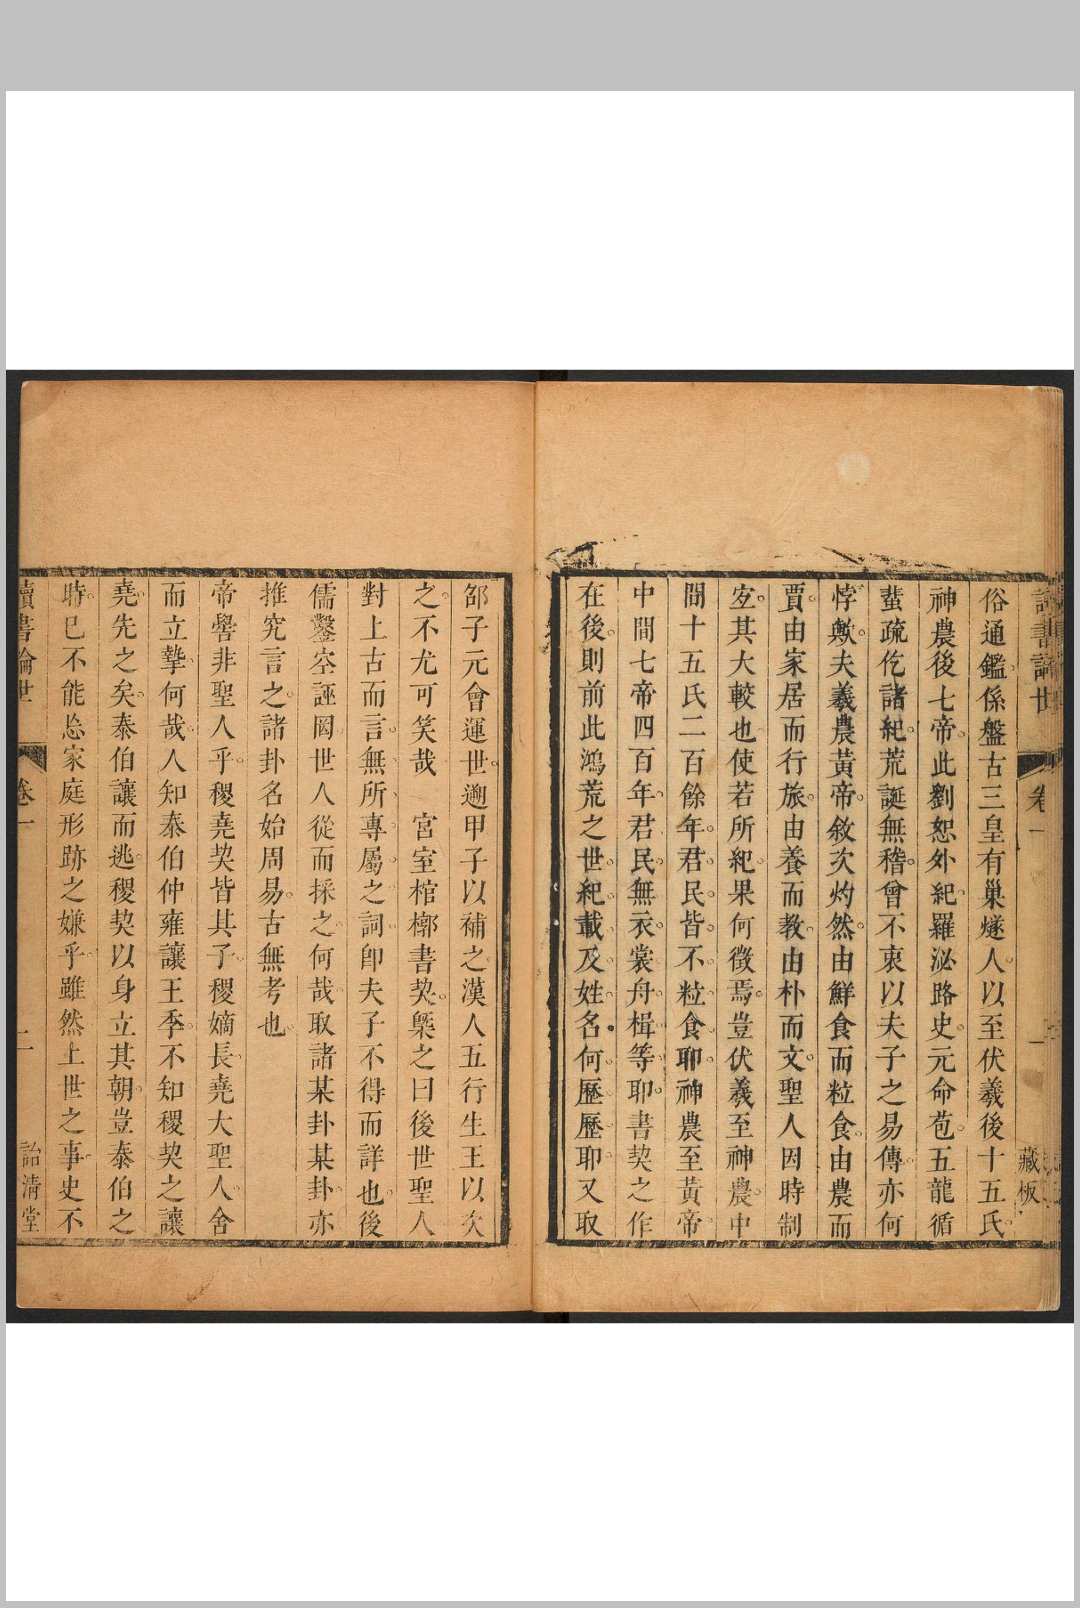 讀書論世
卷一
一
藏板
俗通鑑係盤古三皇有巢燧人以至伏羲後十五氏
神農後七帝此劉恕外紀羅泌路史元命苞五龍循
蜚疏仡諸紀荒誕無稽曾不衷以夫子之易傳亦何
悖歟夫羲農黃帝敘次灼然由鮮食而粒食由農而
賈由家居而行旅由養而教由朴而文聖人因時制
宐其大較也使若所紀果何徵焉豈伏羲至神農中
間十五氏二百餘年君民皆不粒食耶神農至黃帝
中間七帝四百年君民無衣裳舟楫等耶書契之作
在後則前此鴻荒之世紀載及姓名何歷歷耶又取
邵子元會運世遡甲子以補之漢人五行生王以次
之不尤可笑哉　宮室棺槨書契槩之曰後世聖人
對上古而言無所專屬之詞卽夫子不得而詳也後
儒鑿空誣罔世人從而採之何哉取諸某卦某卦亦
推究言之諸卦名始周易古無考也
帝嚳非聖人乎稷堯契皆其子稷嫡長堯大聖人舍
而立摯何哉人知泰伯仲雍讓王季不知稷契之讓
堯先之矣泰伯讓而逃稷契以身立其朝豈泰伯之
時已不能忘家庭形跡之嫌乎雖然上世之事史不
讀書論世
卷一
二
詒清堂